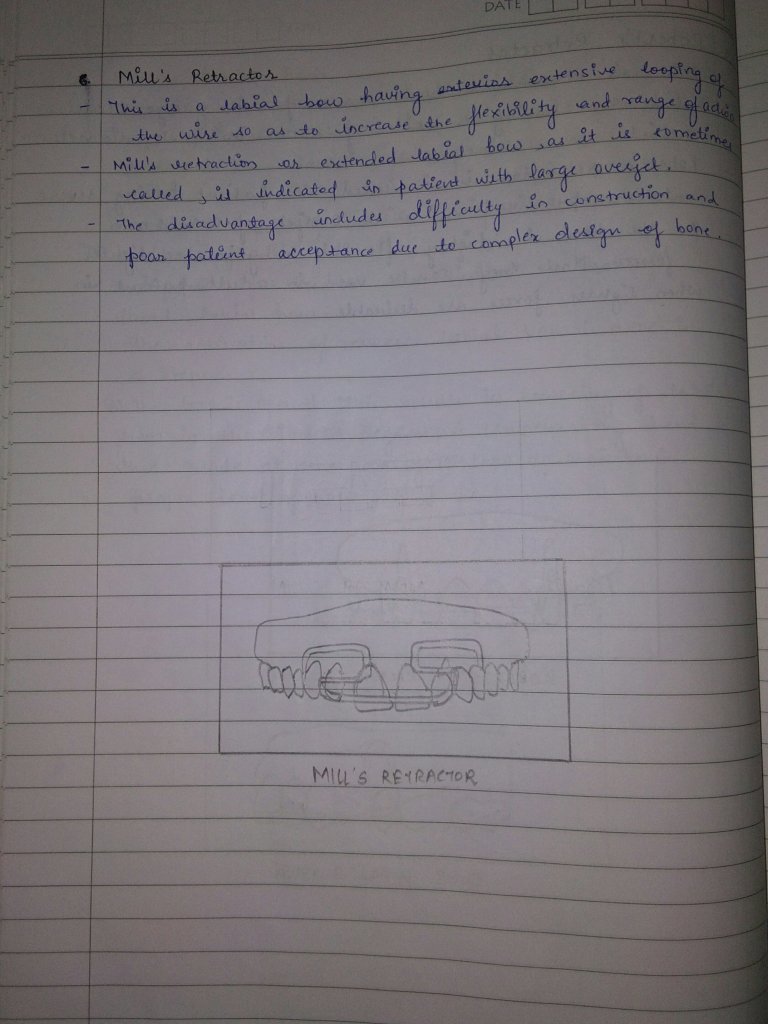 DATE
6. Mill's Retractor
- This is a labial bow having extensive looping of
the wire so as to increase the flexibility and range of action
- Mill's retraction or extended labial bow, as it is sometimes
called, is indicated in patient with large overjet.
- The disadvantage includes difficulty in construction and
poor patient acceptance due to complex design of bone.
MILL'S RETRACTOR